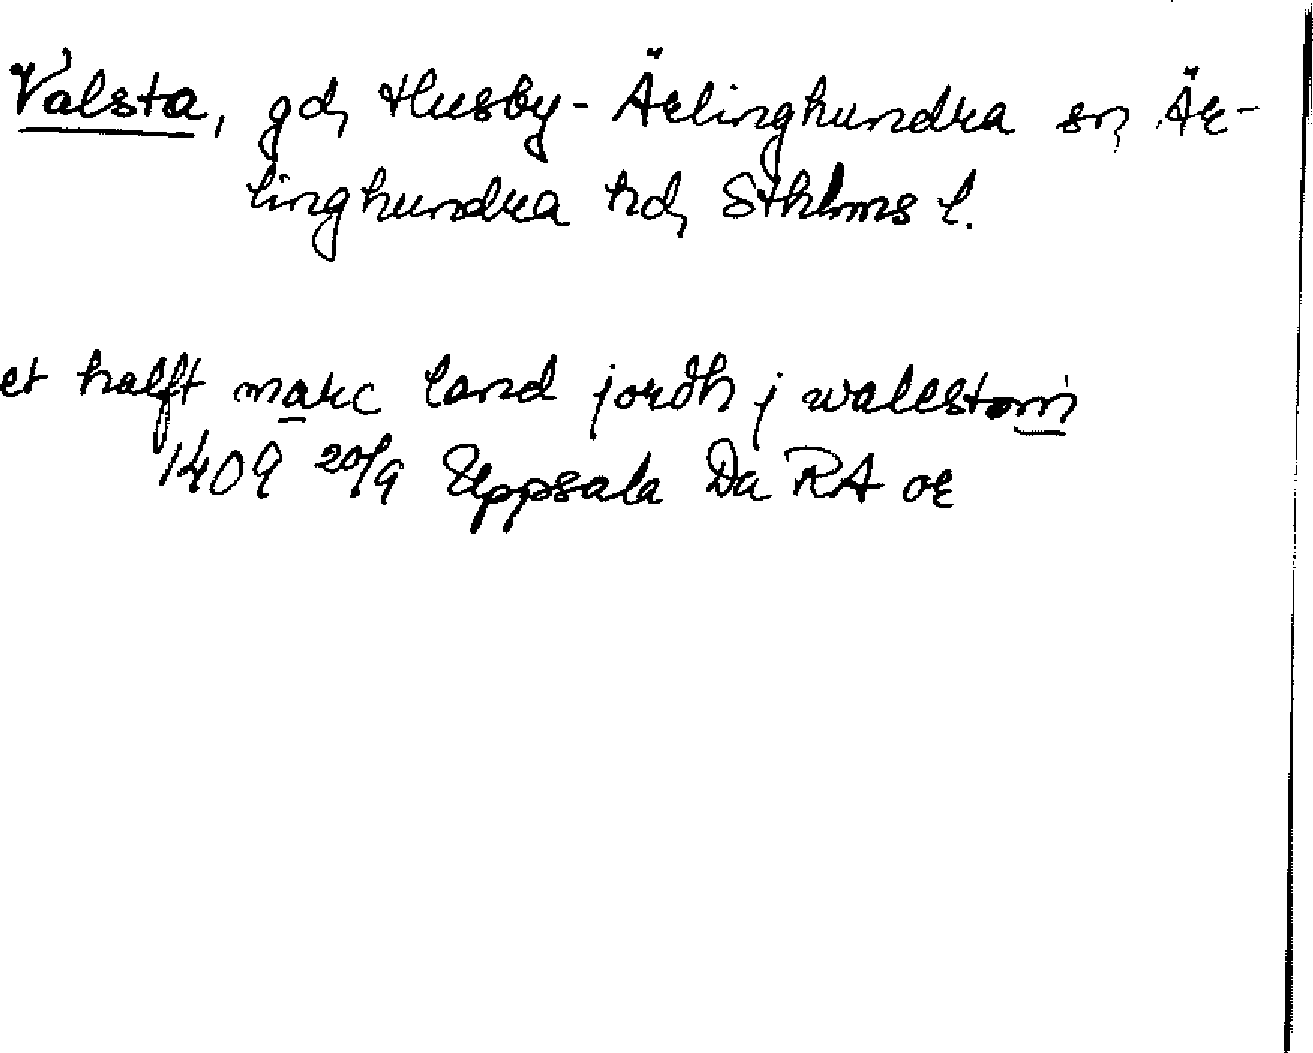 Valsta, gd, Husby-Ärlinghundra sn, Är-
linghundra hd, Sthlms l.
et halft marc land jordh j walestom
1409 20/9 Uppsala Da RA or